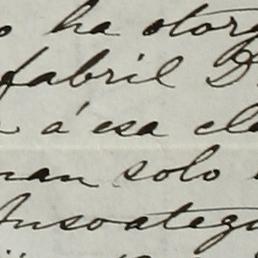 ha otorg
fabril D
á esa cl
nan solo
Ansoategu